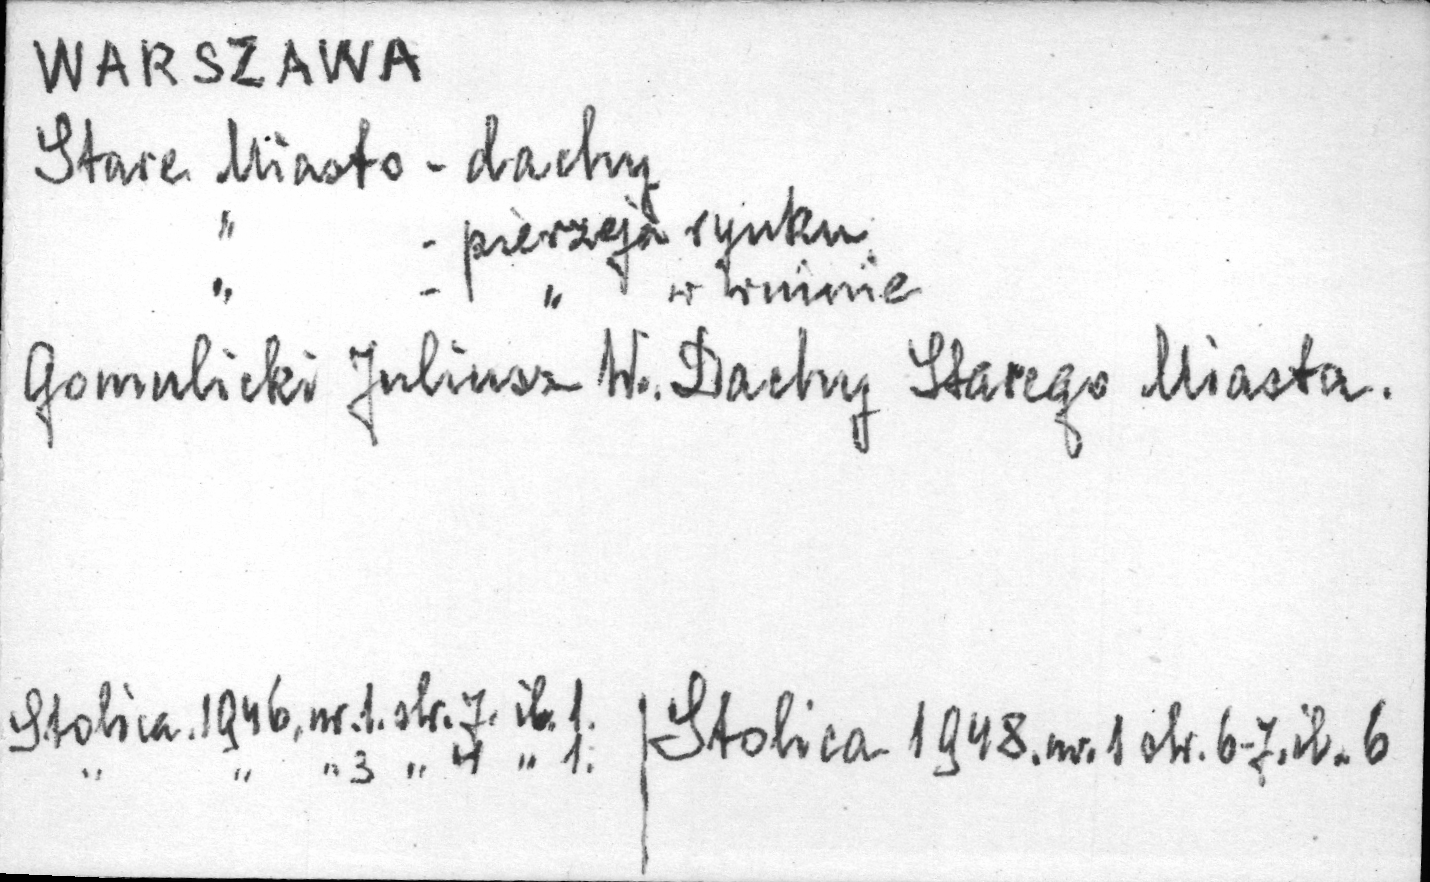 WARSZAWA
Stare Miasto - dachy
" - pierzeja rynku
" - " w ruinie
Gomulicki Juliusz W. Dachy Starego Miasta.
Stolica. 1946, nr. 1. str. 7. il. 1.
" " " 3 " 4 " 1.
Stolica 1948. nr. 1 str. 6-7. il. 6